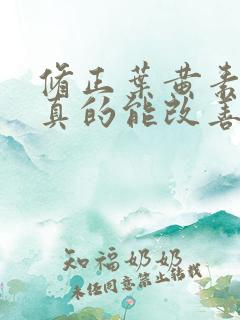 修正葉黄素
真的能改善
知福奶奶
未经同意禁止转载